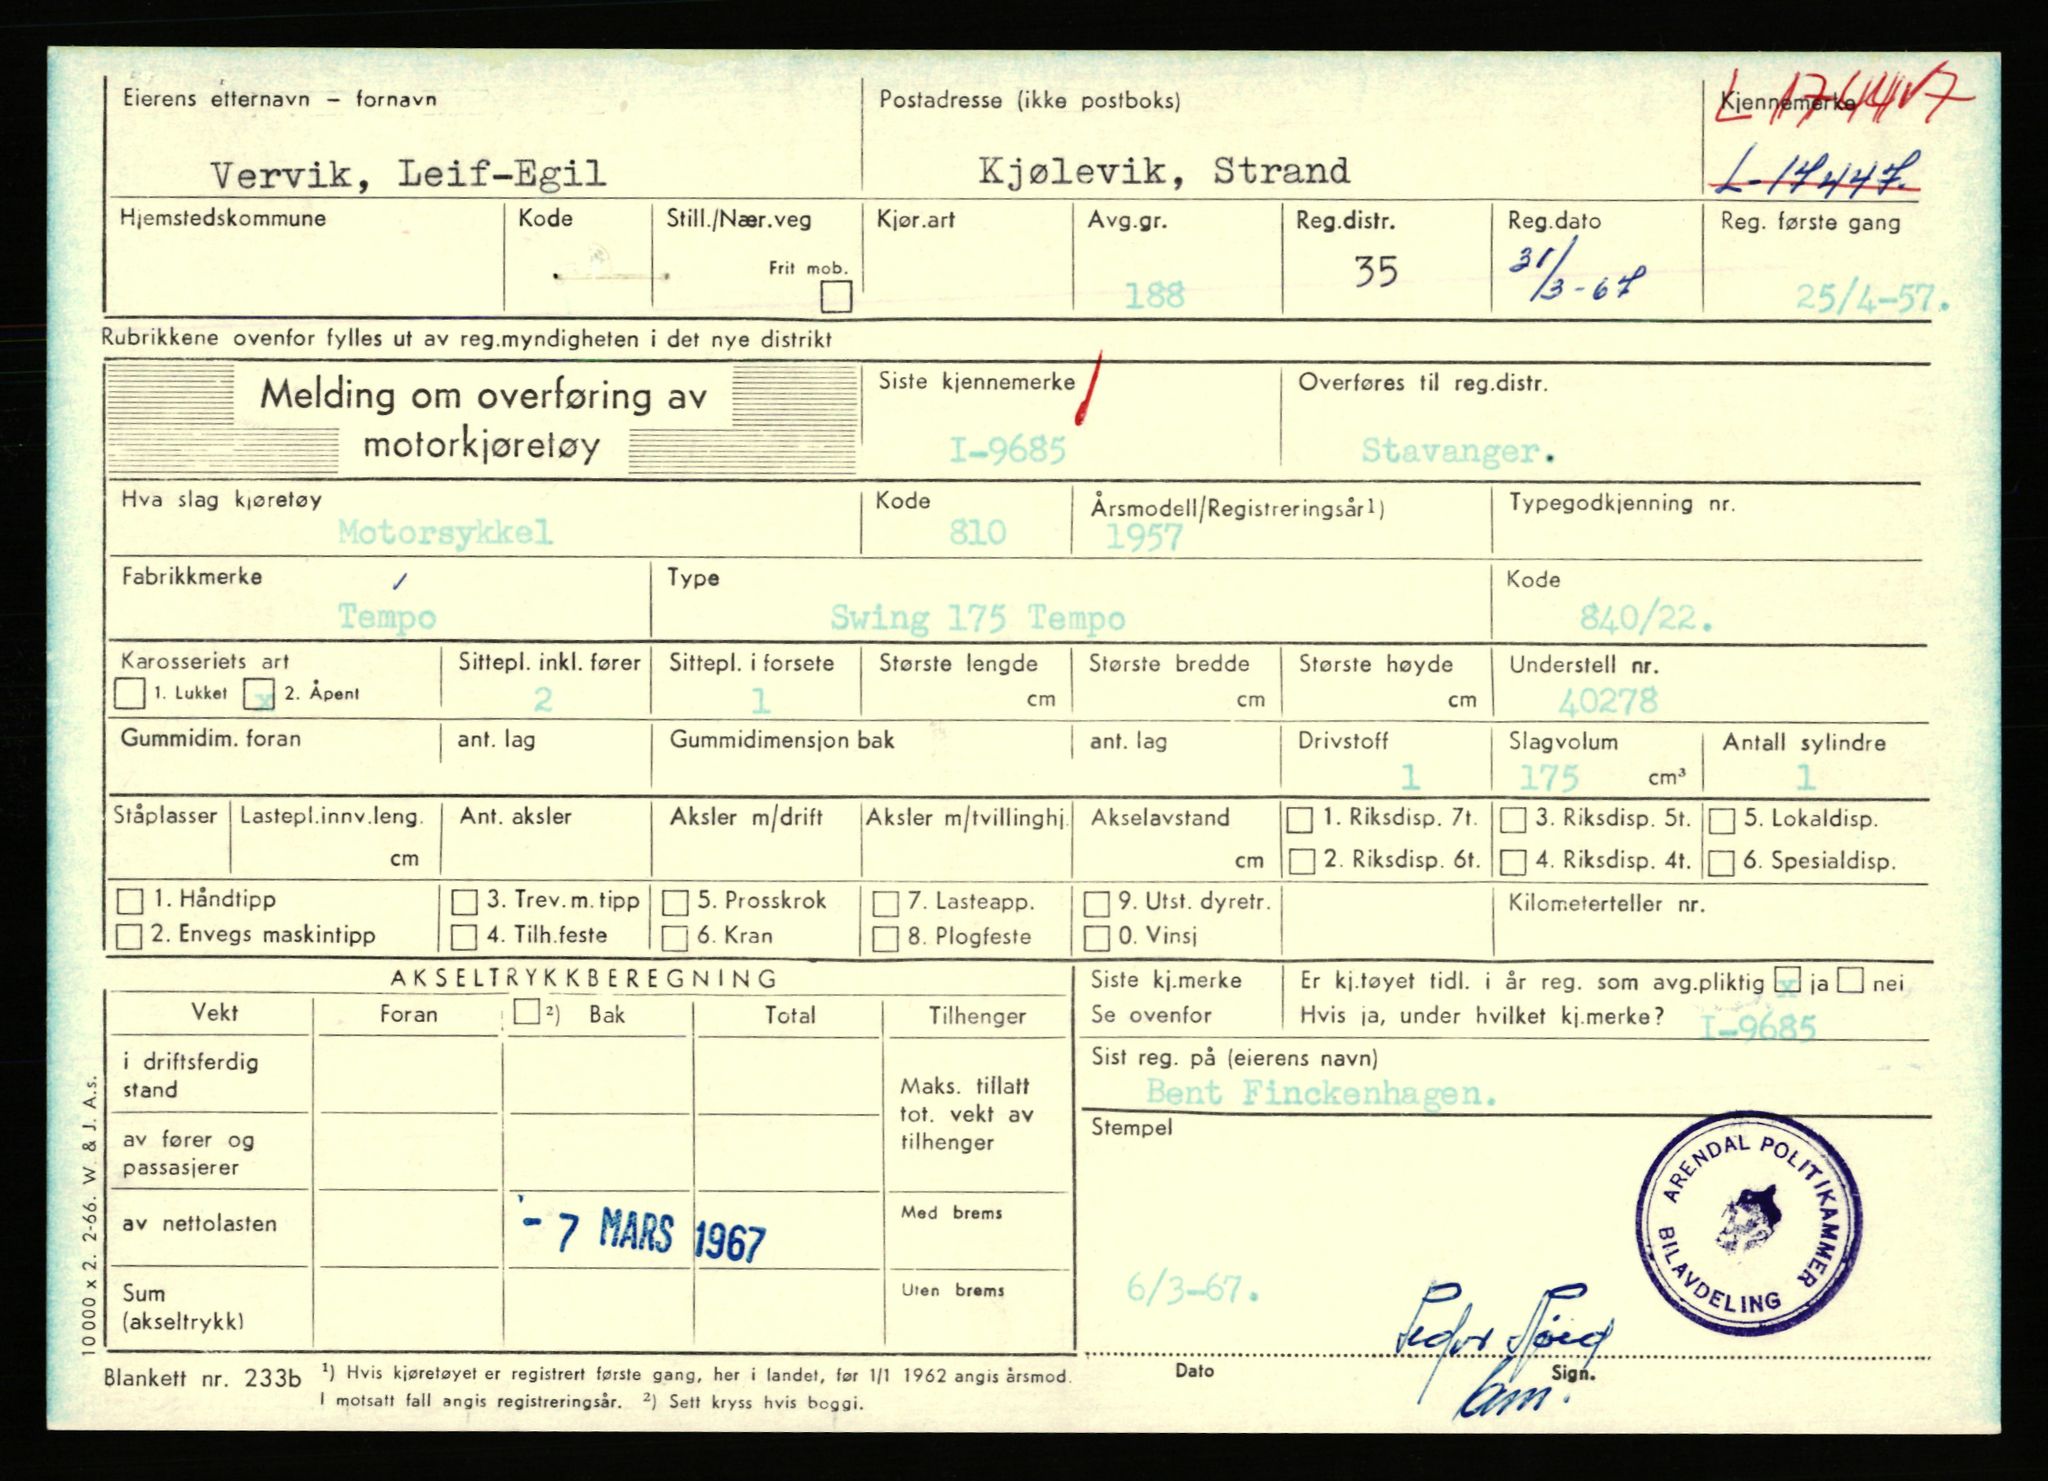 Eierens etternavn – fornavn
Postadresse (ikke postboks)
Kjennemerke
Vervik, Leif-Egil
Kjølevik, Strand
L-17447.
Hjemstedskommune
Kode
Still./Nær.veg
Frit mob.
Kjør.art
Avg.gr.
188
Reg.distr.
35
Reg.dato
31/3-67
Reg. første gang
25/4-57.
Rubrikkene ovenfor fylles ut av reg.myndigheten i det nye distrikt
Melding om overføring av
motorkjøretøy
Siste kjennemerke
I-9685
Overføres til reg.distr.
Stavanger.
Hva slag kjøretøy
Motorsykkel
Kode
810
Årsmodell/Registreringsår1)
1957
Typegodkjenning nr.
Fabrikkmerke
Tempo
Type
Swing 175 Tempo
Kode
840/22.
Karosseriets art
1. Lukket x 2. Åpent
Sittepl. inkl. fører
2
Sittepl. i forsete
1
Største lengde
cm
Største bredde
cm
Største høyde
cm
Understell nr.
40278
Gummidim. foran
ant. lag
Gummidimensjon bak
ant. lag
Drivstoff
1
Slagvolum
175 cm³
Antall sylindre
1
Ståplasser
Lastepl.innv.leng.
cm
Ant. aksler
Aksler m/drift
Aksler m/tvillinghj.
Akselavstand
cm
1. Riksdisp. 7t.
2. Riksdisp. 6t.
3. Riksdisp. 5t.
4. Riksdisp. 4t.
5. Lokaldisp.
6. Spesialdisp.
1. Håndtipp
2. Envegs maskintipp
3. Trev. m. tipp
4. Tilh.feste
5. Prosskrok
6. Kran
7. Lasteapp.
8. Plogfeste
9. Utst. dyretr.
0. Vinsj
Kilometerteller nr.
AKSELTRYKKBEREGNING
Vekt
Foran
2) Bak
Total
Tilhenger
i driftsferdig
stand
av fører og
passasjerer
av nettolasten
Sum
(akseltrykk)
Maks. tillatt
tot. vekt av
tilhenger
Med brems
Uten brems
- 7 MARS 1967
Siste kj.merke
Se ovenfor
Er kj.tøyet tidl. i år reg. som avg.pliktig x ja nei
Hvis ja, under hvilket kj.merke? I-9685
Sist reg. på (eierens navn)
Bent Finckenhagen.
Stempel
ARENDAL POLITIKAMMER
BILAVDELING
6/3-67.
Dato
Sign.
10 000 x 2. 2-66. W. & J. A.s.
Blankett nr. 233b
1) Hvis kjøretøyet er registrert første gang, her i landet, før 1/1 1962 angis årsmod.
I motsatt fall angis registreringsår. 2) Sett kryss hvis boggi.